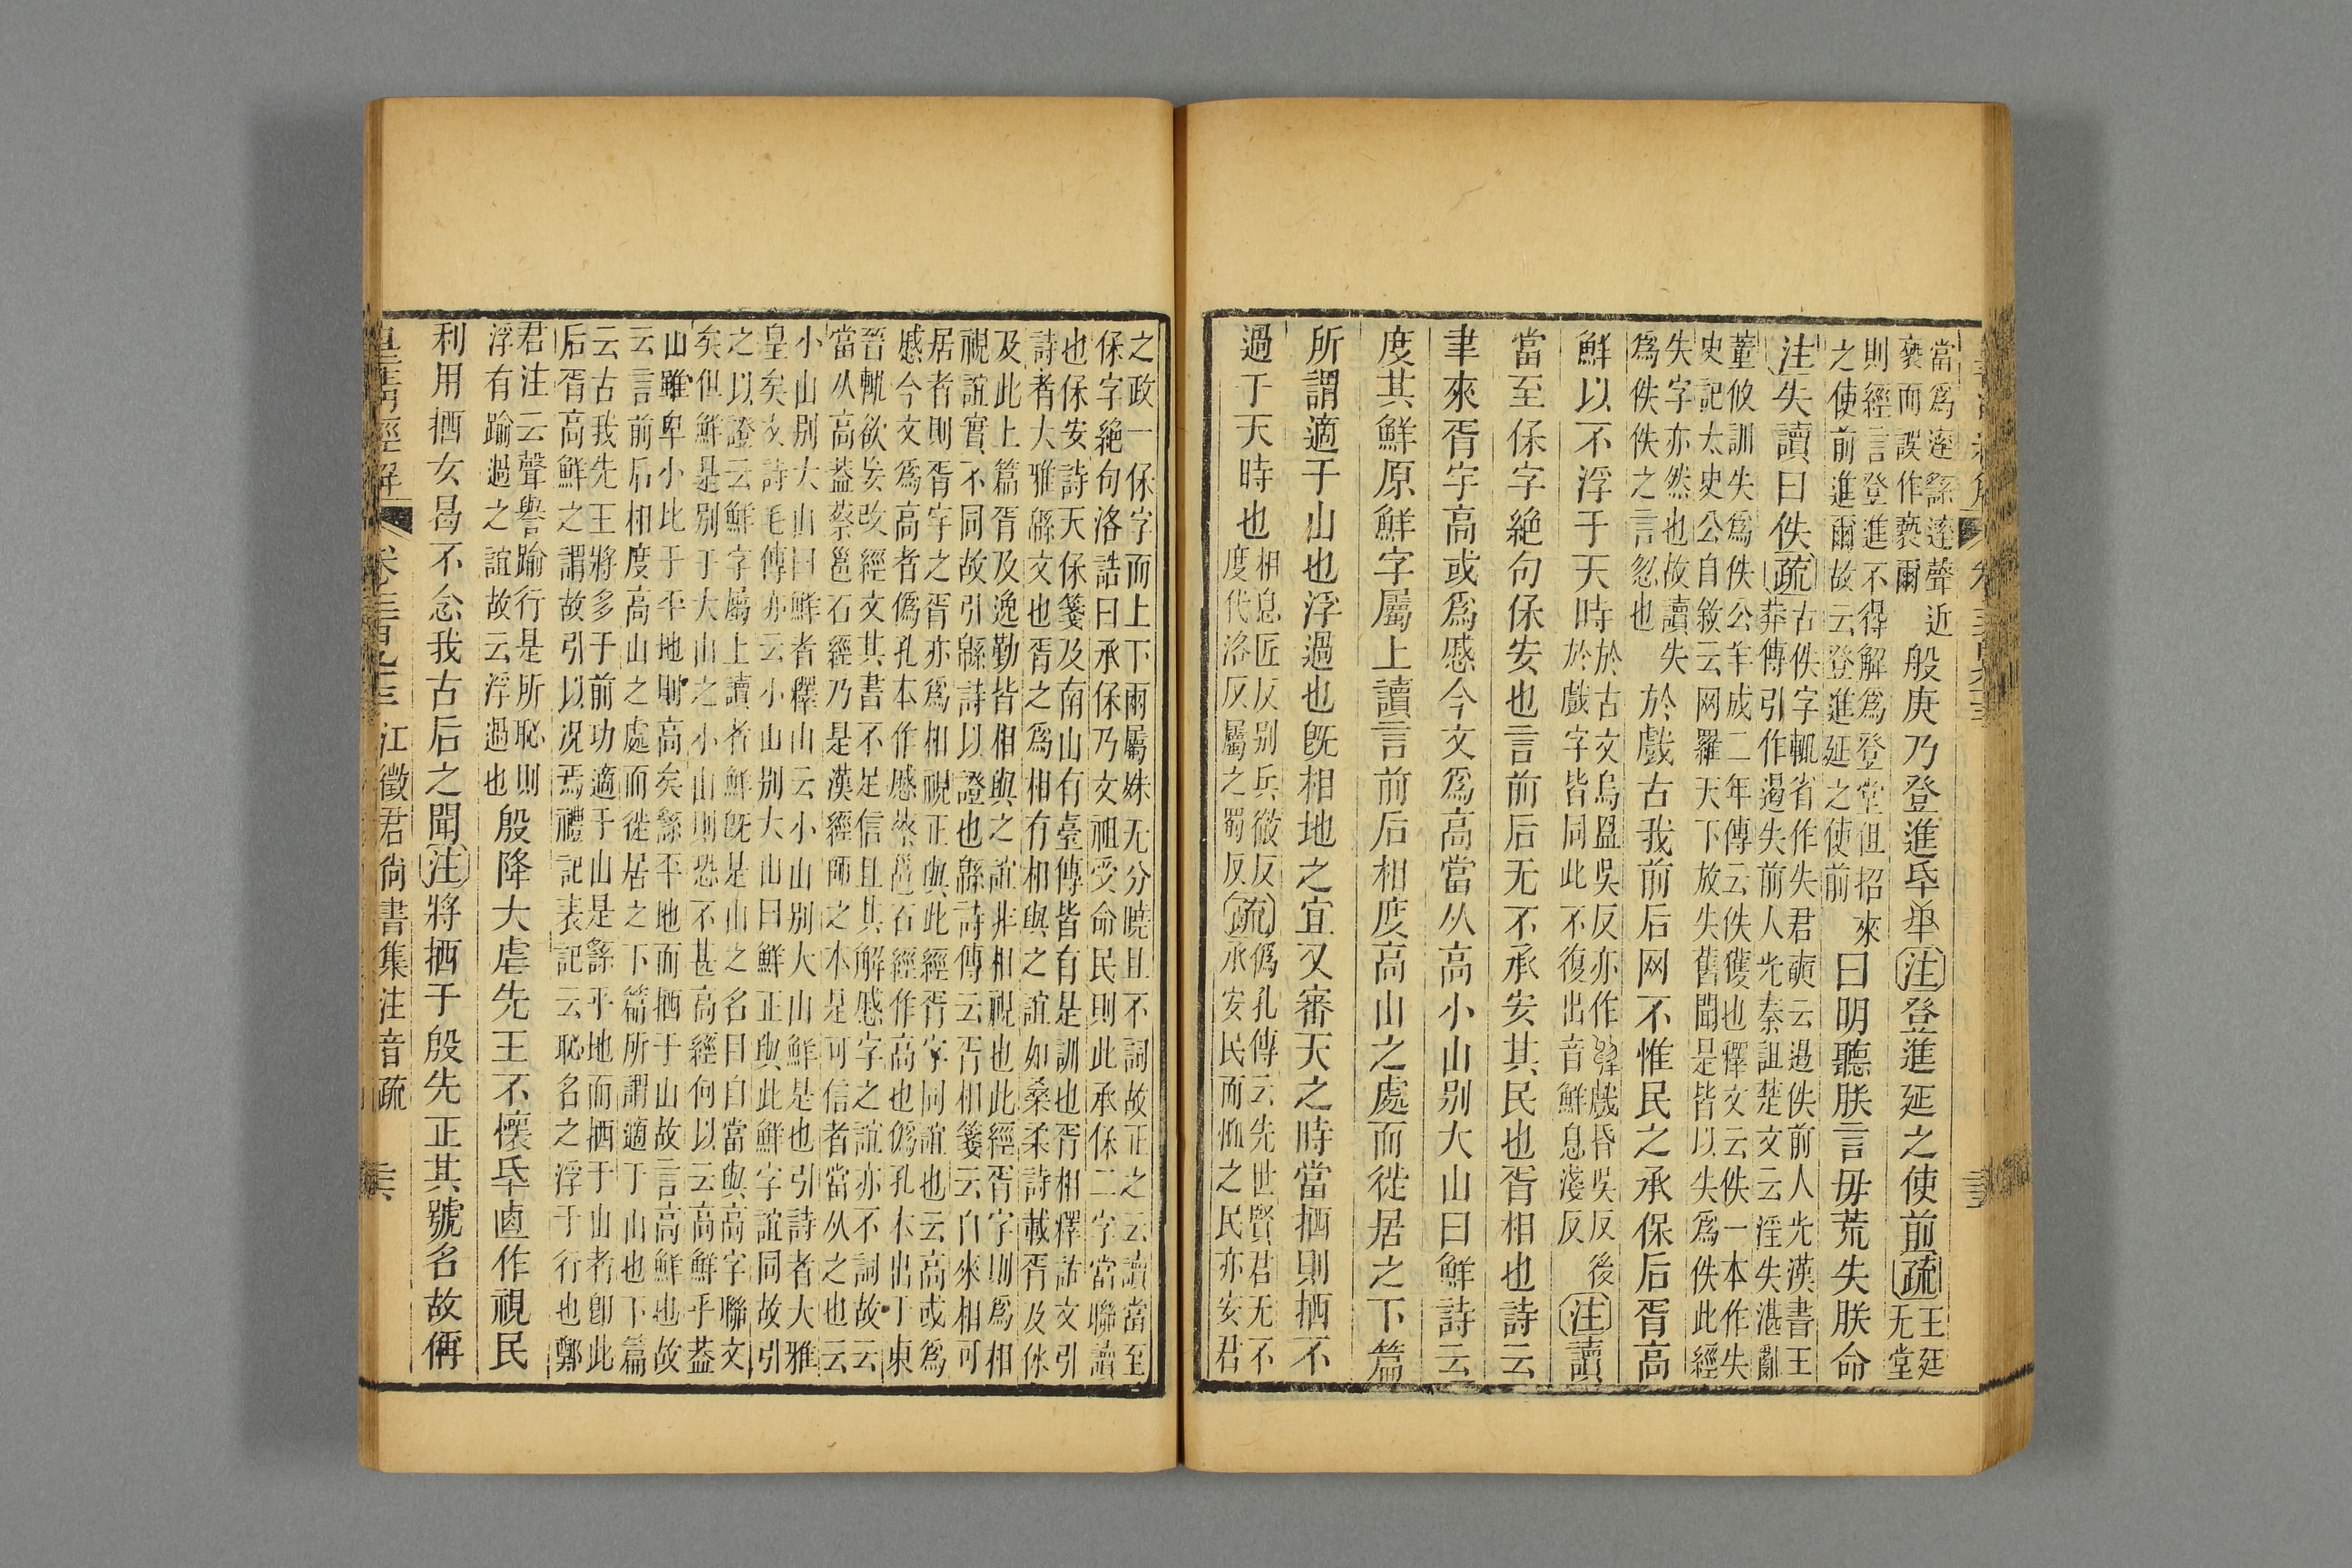 當爲遳繇遳聲近
褻而誤作褻爾
般庚乃登進𠂹𤰞注登進延之使前疏王廷
无堂
則經言登進不得解爲登堂但招來
之使前進爾故云登進延之使前
曰明聽朕言毋荒失朕命
注失讀曰佚疏古佚字輒省作失君奭云遏佚前人光漢書王
莽傳引作遏失前人光秦詛楚文云淫失湛亂
董攸訓失爲佚公羊成二年傳云佚獲也釋文云佚一本作失
史記太史公自敘云网羅天下放失舊聞是皆以失爲佚此經
失字亦然也故讀失
爲佚佚之言忽也
於戲古我前后网不惟民之承保后胥高
鮮以不浮于天時於古文烏盈吳反亦作戲昏吳反後
於戲字皆同此不復出音鮮息淺反
注讀
當至保字絶句保安也言前后无不承安其民也胥相也詩云
聿來胥宇高或爲慼今文爲高當从高小山别大山曰鮮詩云
度其鮮原鮮字屬上讀言前后相度高山之處而徙居之下篇
所謂適于山也浮過也既相地之宜又審天之時當拪則拪不
過于天時也相息匠反别兵徹反
度代洛反屬之蜀反
疏僞孔傳云先世賢君无不
承安民而恤之民亦安君
之政一保字而上下兩屬姝无分曉且不詞故正之云讀當至
保字絶句洛誥曰承保乃文祖受命民則此承保二字當聯讀
也保安詩天保箋及南山有臺傳皆有是訓也胥相釋詁文引
詩者大雅緜文也胥之爲相有相與之誼如桑柔詩載胥及佅
及此上篇胥及逸勤皆相與之誼非相視也此經胥字則爲相
視誼實不同故引緜詩以證也緜詩傳云胥相箋云自來相可
居者則胥宇之胥亦爲相視正與此經胥字同誼也云高或爲
慼今文爲高者僞孔本作慼蔡邕石經作高也僞孔本出于東
晉輒欲妄改經文其書不足信且其解慼字之誼亦不詞故云
當从高葢蔡邕石經乃是漢經師之本是可信者當从之也云
小山别大山曰鮮者釋山云小山别大山鮮是也引詩者大雅
皇矣文詩毛傳亦云小山别大山曰鮮正與此鮮字誼同故引
之以證云鮮字屬上讀者鮮既是山之名曰自當與高字聯文
矣但鮮是别于大山之小山則恐不甚高經何以云高鮮乎葢
山雖卑小比于平地則高矣繇平地而拪于山故言高鮮也故
云言前后相度高山之處而徙居之下篇所謂適于山也下篇
云古我先王將多于前功適于山是繇乎地而拪于山者卽此
后胥高鮮之謂故引以况焉禮記表記云恥名之浮于行也鄭
君注云聲譽踰行是所恥則
浮有踰過之誼故云浮過也
殷降大虐先王不懷𠂹逌作視民
利用拪女曷不念我古后之聞注將拪于殷先正其號名故偁
江徵君尙書集注音疏